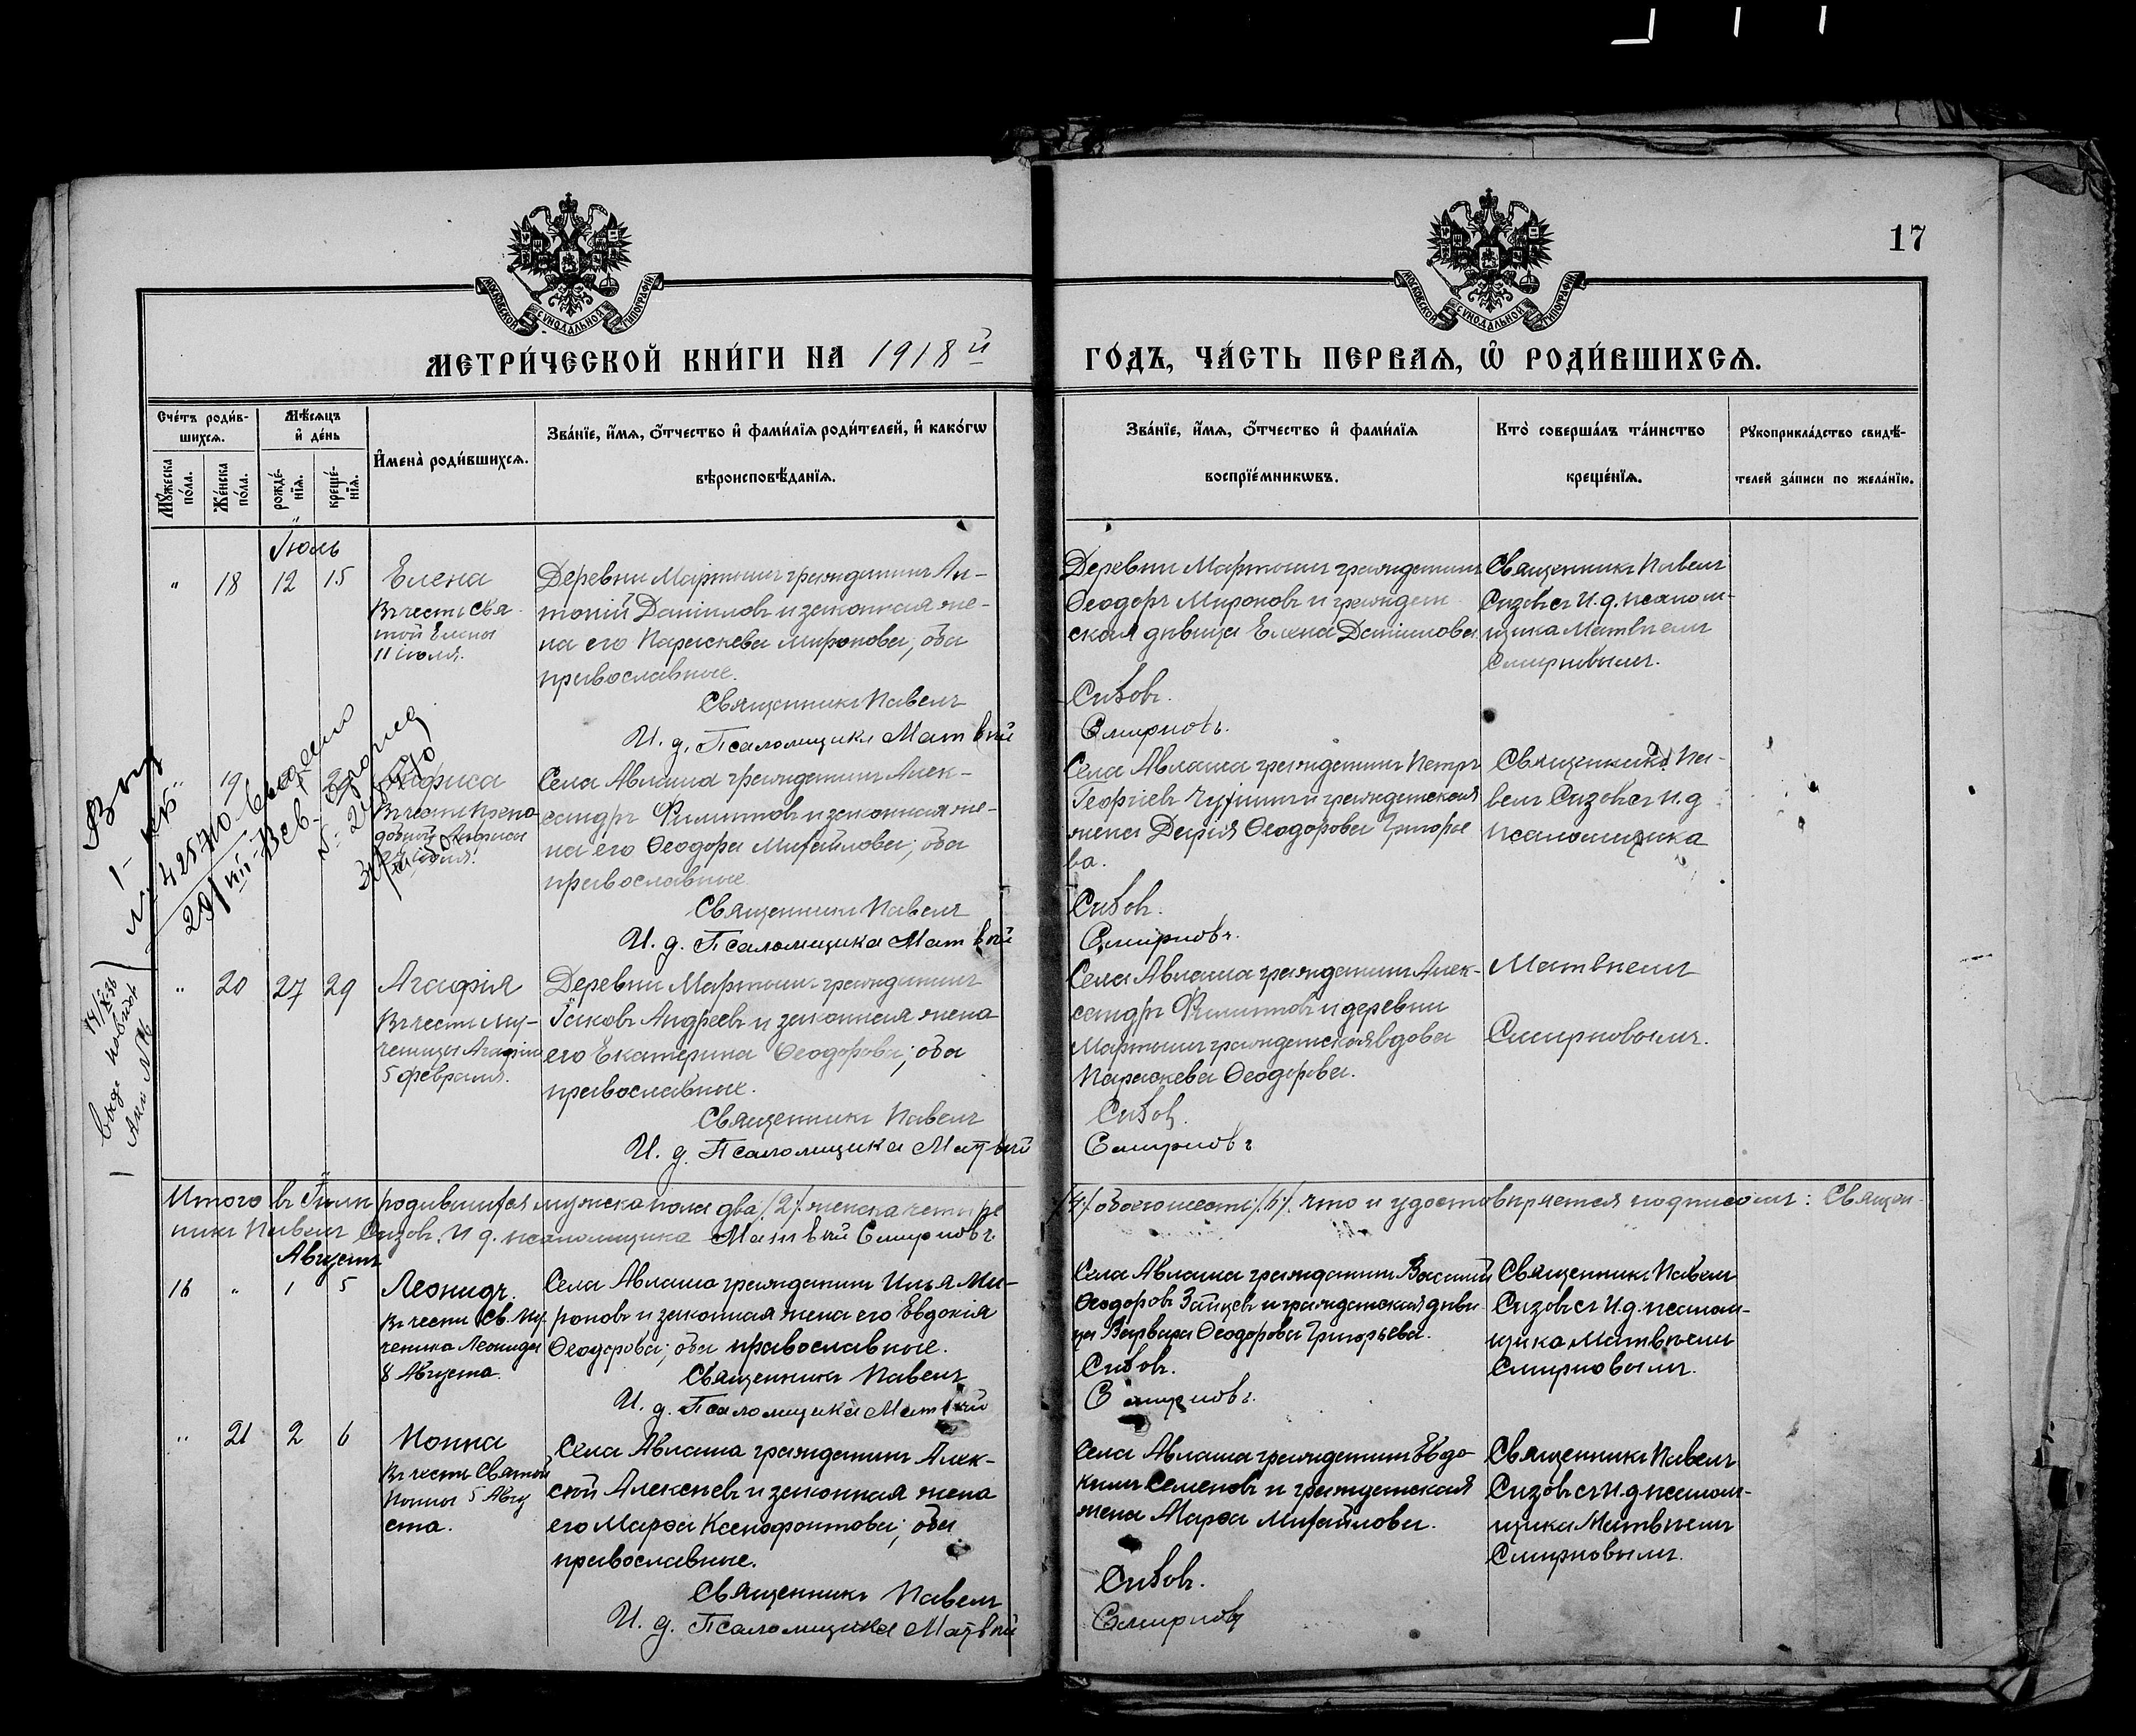 17
МОСКОВСКОЙ СѴНОДАЛЬНОЙ ТИПОГРАФІИ
МОСКОВСКОЙ СѴНОДАЛЬНОЙ ТИПОГРАФІИ
МЕТРИ́ЧЕСКОЙ КНИ́ГИ НА 1918й
ГО́ДЪ, ЧА́СТЬ ПЕРВАѦ, Ѽ РОДИ́ВШИХСѦ.
Сче́тъ роди́в-
шихсѧ.
Мꙋ́жеска по́ла.
Же́нска по́ла.
Мѣ́сѧцъ
и҆ де́нь
рожде́-нїѧ.
креще́-нїѧ.
И҆мена̀ роди́вшихсѧ.
Зва́нїе, и҆́мѧ, ѻ҆́тчество и҆ фами́лїѧ роди́телей, и҆ како́гѡ
вѣроисповѣ́данїѧ.
Зва́нїе, и҆́мѧ, ѻ҆́тчество и҆ фами́лїѧ
воспрїе́мникѡвъ.
Кто̀ соверша́лъ та́инство
креще́нїѧ.
Рꙋкоприкла́дство свидѣ́-
телей за́писи по жела́нїю.
Іюль
" 18 12 15
Елена
Въ честь Свя-
той Елены
11 іюля.
Деревни Мартыш гражданинъ Ан-
тоній Даниловъ и законная же-
на его Параскева Миронова; оба
православные.
Священникъ Павелъ
И. д. Псаломщика Матвѣй
Деревни Мартыш гражданинъ
Ѳеодоръ Мироновъ и граждан-
ская дѣвица Елена Данилова
Сизовъ.
Смирновъ.
Священникъ Павелъ
Сизовъ съ И. д. псалом-
щика Матвѣемъ
Смирновымъ.
" 19
Села Авлаша гражданинъ Алек-
сандръ Филиповъ и законная же-
на его Ѳеодора Михайлова; оба
православные
Священникъ Павелъ
И. д. Псаломщика Матвѣй
Села Авлаша гражданинъ Петръ
Георгіевъ и гражданская
жена Дарія Ѳеодорова Григорье
ва.
Сизовъ.
Смирновъ.
Священникъ Па-
велъ Сизовъ съ И. д
псаломщика
" 20 27 29
Агафія
Въ честь му-
ченицы Агафіи
5 февраля.
Деревни Мартыш гражданинъ
Іаковъ Андреевъ и законная жена
его Екатерина Ѳеодорова; оба
православные.
Священникъ Павелъ
И. д. Псаломщика Матвѣй
Села Авлаша гражданинъ Алек-
сандръ Филиповъ и деревни
Мартыш гражданская вдова
Параскева Ѳеодорова.
Сизовъ
Смирновъ
Матвѣемъ
Смирновымъ.
Итого въ Іюлѣ родившихся мужска пола два /2/ женска четыре
/4/. обоего шесть /6/. что и удостовѣряется подписомъ: Священ-
никъ Павелъ Сизовъ. И д. псаломщика Матвѣй Смирновъ
Августъ
16 " 1 5
Леонидъ.
Въ честь Св. му-
ченика Леонида
8 Августа.
Села Авлаша гражданинъ Илья Ми-
роновъ и законная жена его Евдокія
Ѳеодорова; оба православные.
Священникъ Павелъ
И. д. Псаломщика Матвѣй
Села Авлаша гражданинъ Василій
Ѳеодоровъ Зайцевъ и гражданская дѣви
ца Варвара Ѳеодорова Григорьева.
Сизовъ.
Смирновъ.
Священникъ Павелъ
Сизовъ съ И. д. псалом-
щика Матвѣемъ
Смирновымъ.
" 21 2 6
Нонна
Въ честь Святой
Нонны 5 Авгу
ста.
Села Авлаша гражданинъ Алек-
сѣй Алексѣевъ и законная жена
его Марѳа Ксенофонтова; оба
православные.
Священникъ Павелъ
И. д. Псаломщика Матвѣй
Села Авлаша гражданинъ Евдо-
кимъ Семеновъ и гражданская
жена Марѳа Михайлова.
Сизовъ.
Смирновъ
Священникъ Павелъ
Сизовъ съ И. д. псалом-
щика Матвѣемъ
Смирновымъ.